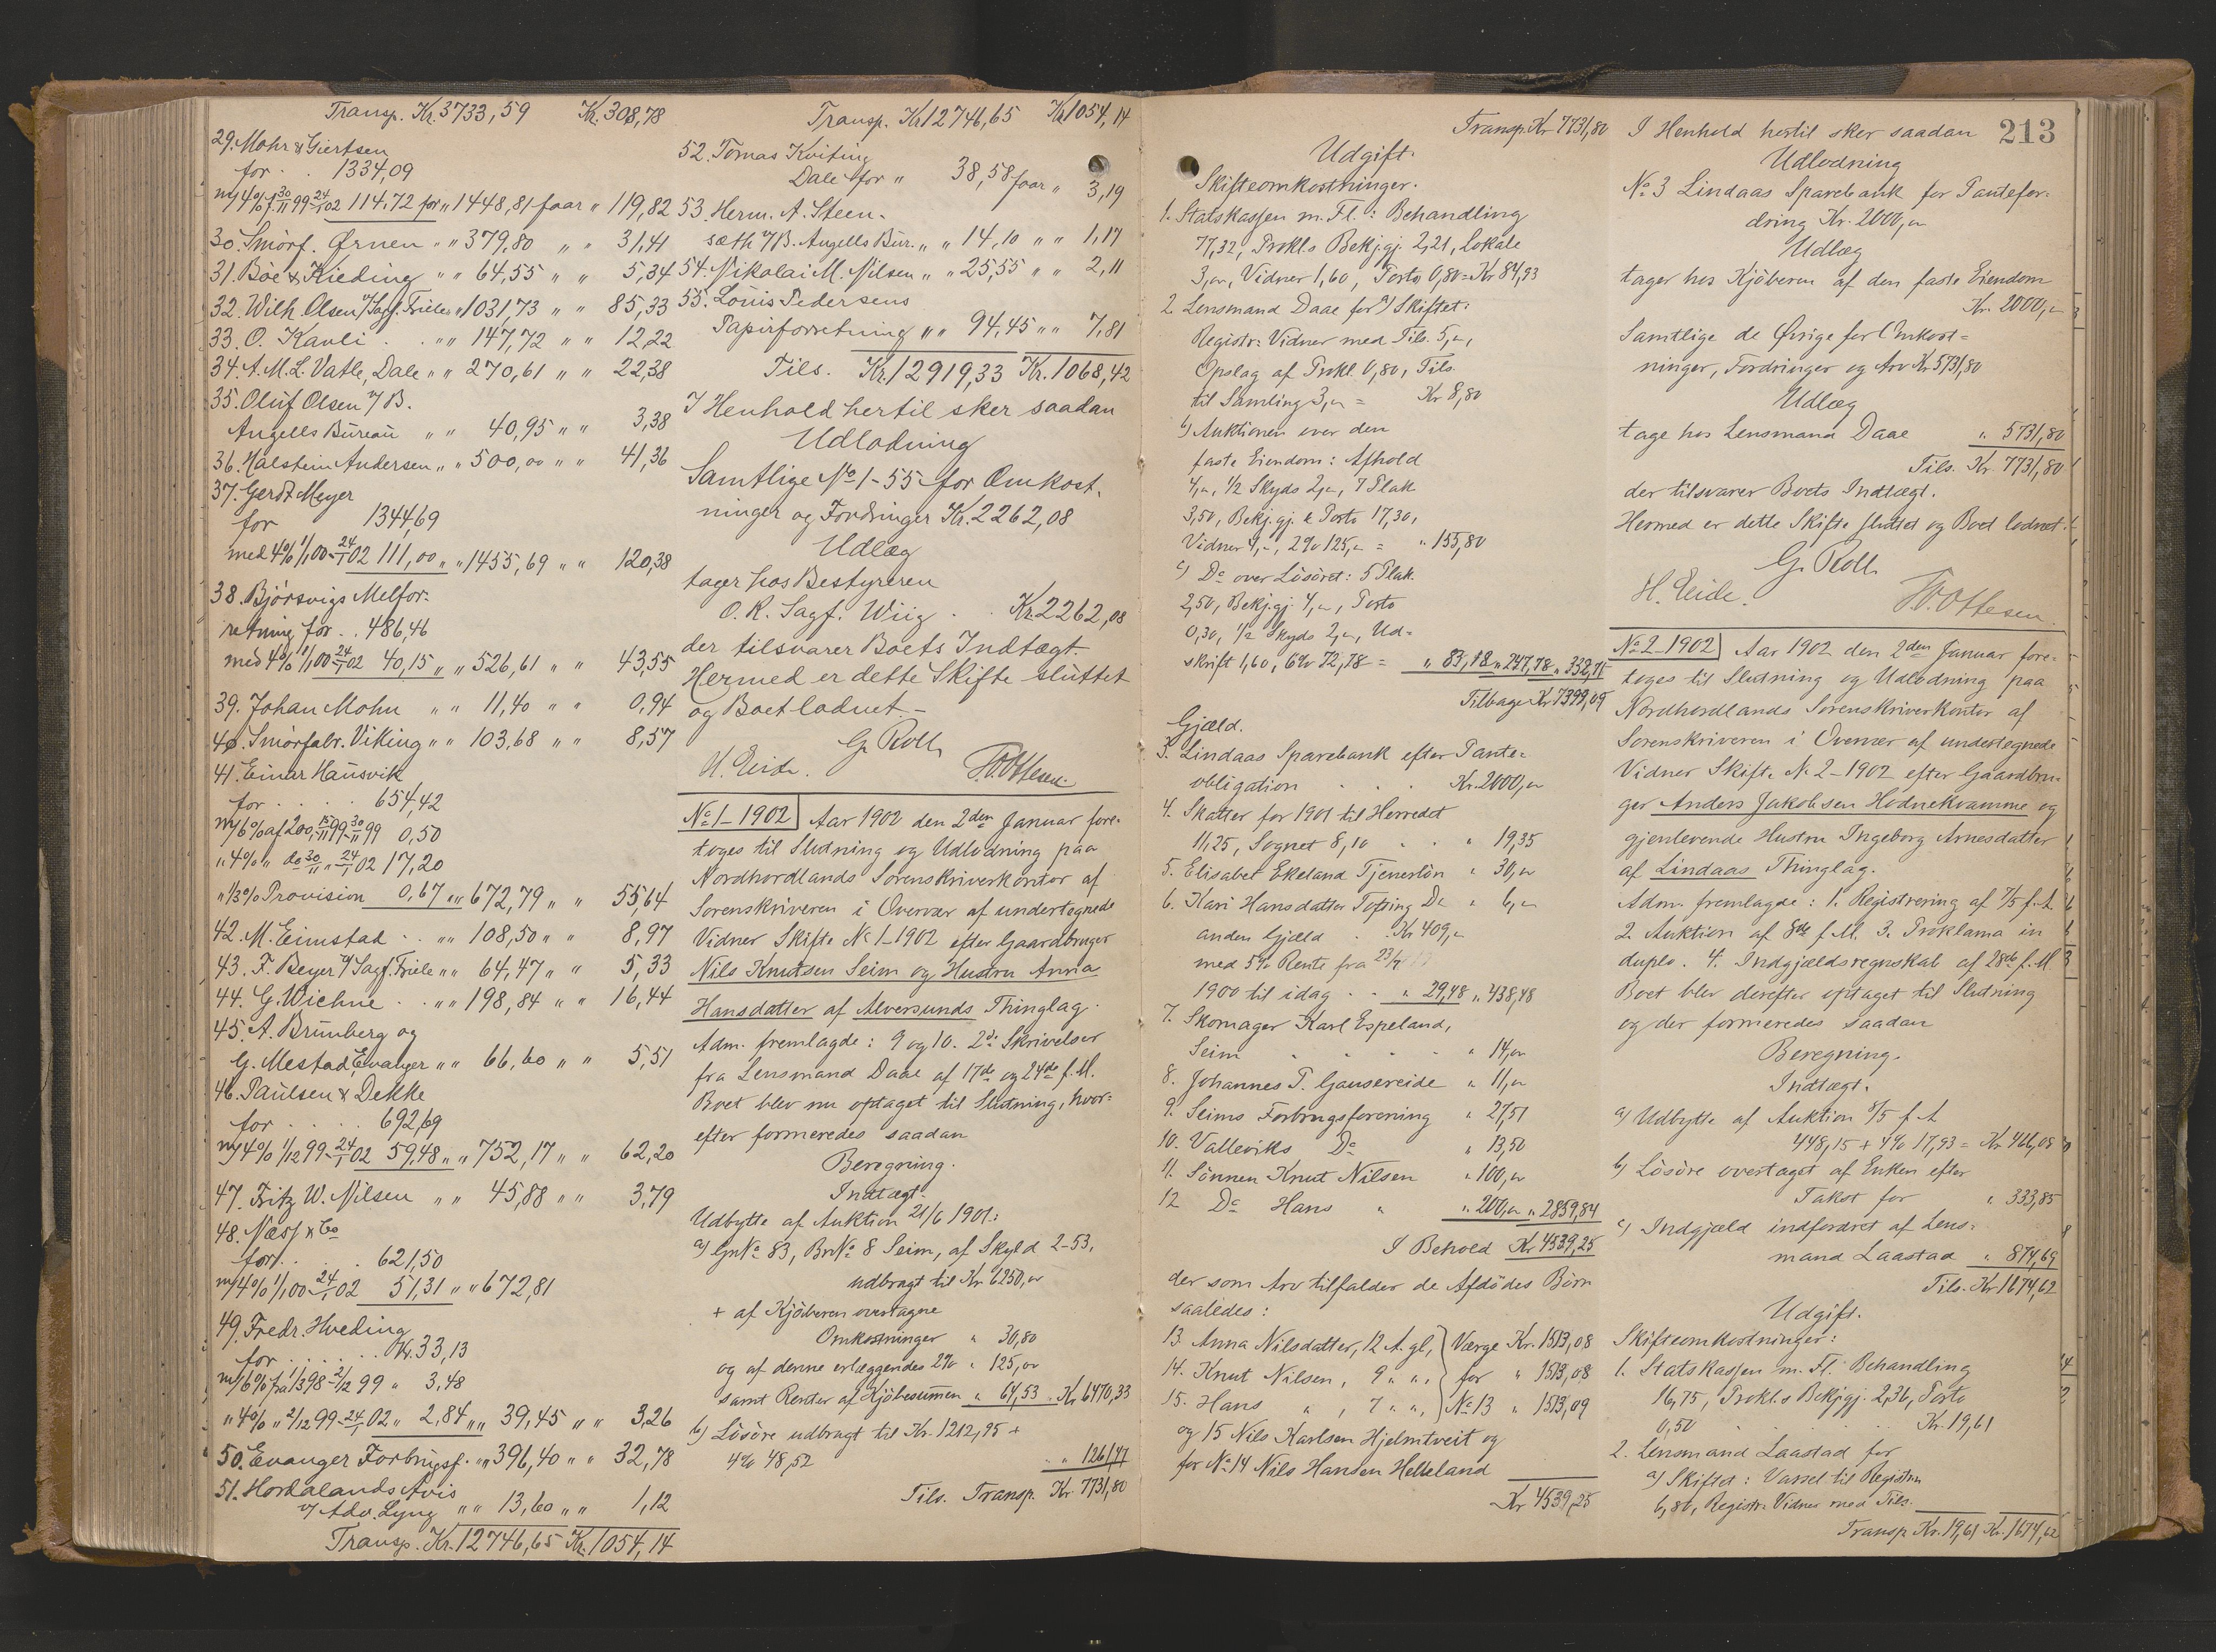 Transp. Kr. 3733,59 Kr. 308,78
29. Mohr & Giertsen
for . . 1334,09
m/ 4% f. 30/11 99 - 24/1 02 114,72 for „ 1448,81 faar „ 119,82
30. Smörf. Ørnen „ „ 379,80 „ „ 31,41
31. Böe & Kieding „ „ 64,55 „ „ 5,34
32. Wilh. Olsen v/ Sagf. Friele „ „ 1031,73 „ „ 85,33
33. O. Kavli . . „ „ 147,72 „ „ 12,22
34. A. M. L. Vatle, Dale „ „ 270,61 „ „ 22,38
35. Oluf Olsen v/ B.
Angells Bureau „ „ 40,95 „ „ 3,38
36. Halstein Andersen „ „ 500,00 „ „ 41,36
37. Gerdt Meyer
for 1344,69
med 4% 1/1 00 - 24/1 02 111,00 „ „ 1455,69 „ „ 120,38
38. Björsvigs Melfor-
retning for . . 486,46
med 4% 1/1 00 - 24/1 02 40,15 „ „ 526,61 „ „ 43,55
39. Johan Mohn „ „ 11,40 „ „ 0,94
40. Smörfabr. Viking „ „ 103,68 „ „ 8,57
41. Einar Hausvik
for . . . . 654,42
m/ 6% af 200,- 15/11 99 - 30/11 99 0,50
„ 4% „ do 30/11 „ - 24/1 02 17,20
„ 1/3% Provision 0,67 „ „ 672,79 „ „ 55,64
42. M. Eimstad . . „ „ 108,50 „ „ 8,97
43. F. Beyer v/ Sagf. Friele „ „ 64,47 „ „ 5,33
44. G. Wiehne . . „ „ 198,84 „ „ 16,44
45. A. Brunberg og
G. Mestad, Evanger „ „ 66,60 „ „ 5,51
46. Paulsen & Dekke
for . . . . 692,69
m/ 4% 1/12 99 - 24/1 02 59,48 „ „ 752,17 „ „ 62,20
47. Fritz W. Nilsen „ „ 45,88 „ „ 3,79
48. Næss & Co
for . . . 621,50
m/ 4% 1/1 00 - 24/1 02 51,31 „ „ 672,81
49. Fredr. Hveding
for . . . . . Kr. 33,13
m/ 6% fra 1/3 98 - 2/12 99 „ 3,48
„ 4% „ 2/12 99 - 24/1 02 „ 2,84 „ „ 39,45 „ „ 3,26
50. Evanger Forbrugsf. „ „ 396,40 „ „ 32,78
51. Hordalands Avis
v/ Adv. Lyng „ „ 13,60 „ „ 1,12
Transp. Kr. 12746,65 Kr. 1054,14
Transp. Kr. 12746,65 Kr. 1054,14
52. Tomas Kviting
Dale for „ 38,58 faar „ 3,19
53. Herm. A. Steen-
sæth v/ B. Angells Bur. „ „ 14,10 „ „ 1,17
54. Nikolai M. Nilsen „ „ 25,55 „ „ 2,11
55. Louis Pedersens
Papirforretning „ „ 94,45 „ „ 7,81
Tils. Kr. 12919,33 Kr. 1068,42
I Henhold hertil sker saadan
Udlodning
Samtlige No 1-55 for Omkost-
ninger og Fordringer Kr. 2262,08
Udlæg
tager hos Bestyreren
O. R. Sagf. Wiig . . Kr. 2262,08
der tilsvarer Boets Indtægt.
Hermed er dette Skifte sluttet
og Boet lodnet.-
G. Roll
H. Eide. Th. Ottesen
No 1-1902 Aar 1902 den 2den Januar fore-
toges til Slutning og Udlodning paa
Nordhordlands Sorenskriverkontor af
Sorenskriveren i Overvær af undertegnede
Vidner Skifte No 1-1902 efter Gaardbruger
Nils Knutsen Seim og Hustru Anna
Hansdatter af Alversunds Thinglag.
Adm. fremlagde: 9 og 10. 2de Skrivelser
fra Lensmand Daae af 17de og 24de f. M.
Boet blev nu optaget til Slutning, hvor-
efter formeredes saadan
Beregning.
Indtægt.
Udbytte af Auktion 21/6 1901:
a) Gn No 83, Bn No 8 Seim, af Skyld 2-53,
udbragt til Kr. 6250,00
+ af Kjöberen overtagne
Omkostninger „ 30,80
og af denne erlæggendes 2% „ 125,00
samt Renter af Kjöbesummen „ 64,53 = Kr. 6470,33
b) Lösöre udbragt til Kr. 1212,95 +
4% 48,52 . „ 1261,47
Tils. Transp. Kr. 7731,80
Transp. Kr. 7731,80
Udgift.
Skifteomkostninger.
1. Statskassen m. Fl.: Behandling
77,32, Prokl.s Bekj.gj. 2,21, Lokale
3,00, Vidner 1,60, Porto 0,80 = Kr. 84,93
2. Lensmand Daae for a) Skiftet:
Registr: Vidner med Tils. 5,00,
Opslag af Prokl. 0,80, Tils.
til Samling 3,00 = Kr. 8,80
b) Auktionen over den
faste Eiendom: Afhold
4,00, 1/2 Skyds 2,00, 7 Plak.
3,50, Bekj.gj. & Porto 17,30,
Vidner 4,-, 2% 125,00 = „ 155,80
c) Do over Lösöret: 5 Plak.
2,50, Bekj.gj. 4,00, Porto
0,30, 1/2 Skyds 2,00, Ud-
skrift 1,60, 6% 72,78 = „ 83,18 „ 247,78 „ 332,71
Tilbage Kr. 7399,09
Gjæld.
3. Lindaas Sparebank efter Pante-
obligation . . . Kr. 2000,00
4. Skatter for 1901 til Herredet
11,25, Sognet 8,10 . . „ 19,35
5. Elisabet Ekeland Tjenerlön „ 30,00
6. Kari Hansdatter Tofting Do „ 6,00
anden Gjæld . . Kr. 409,00
med 5% Rente fra 23/7
1900 til idag . . „ 29,48 „ 438,48
7. Skomager Karl Espeland,
Seim . . . . . „ 14,00
8. Johannes P. Gausereide „ 11,00
9. Seims Forbrugsforening „ 27,51
10. Valleviks Do „ 13,50
11. Sönnen Knut Nilsen „ 100,00
12 Do Hans „ „ 200,00 „ 2859,84
I Behold Kr. 4539,25
der som Arv tilfalder de Afdödes Börn
saaledes:
13. Anna Nilsdatter, 12 A. gl, Værge Kr. 1513,08
14. Knut Nilsen, 9 „ „, for „ 1513,08
15. Hans „ , 7 „ „, No 13 „ 1513,09
og 15 Nils Karlsen Hjelmtveit og
for No 14 Nils Hansen Helleland
Kr 4539,25
I Henhold hertil sker saadan 213
Udlodning
No 3 Lindaas Sparebank for Pantefor-
dring Kr. 2000,00
Udlæg
tager hos Kjöberen af den faste Eiendom
Kr. 2000,00
Samtlige de Øvrige for Omkost-
ninger, Fordringer og Arv Kr. 5731,80
Udlæg
tage hos Lensmand Daae „ 5731,80
Tils. Kr. 7731,80
der tilsvarer Boets Indtægt.
Hermed er dette Skifte sluttet og Boet lodnet.
G. Roll
H. Eide. Th. Ottesen.
No 2-1902 Aar 1902 den 2den Januar fore-
toges til Slutning og Udlodning paa
Nordhordlands Sorenskriverkontor af
Sorenskriveren i Overvær af undertegnede
Vidner Skifte No 2-1902 efter Gaardbru-
ger Anders Jakobsen Hodnekvamme og
gjenlevende Hustru Ingeborg Arnesdatter
af Lindaas Thinglag.
Adm. fremlagde: 1. Registrering af 7/5 f. A.
2. Auktion af 8de f. M. 3. Proklama in
duplo. 4. Indgjældsregnskab af 28de f. M.
Boet blev derefter optaget til Slutning
og der formeredes saadan
Beregning.
Indtægt.
a) Udbytte af Auktion 8/5 f. A
448,15 + 4% 17,93 = Kr. 466,08
b) Lösöre overtaget af Enken efter
Takst for „ 333,85
c) Indgjæld indfordret af Lens-
mand Laastad „ 874,69
Tils. Kr. 1674,62
Udgift.
Skifteomkostninger:
1. Statskassen m. Fl.: Behandling
16,75, Prokl.s Bekj.gj. 2,36, Porto
0,50 . . . . Kr. 19,61
2. Lensmand Laastad for
a) Skiftet: Varsel til Registr:
6,80, Registr: Vidner med Tils.
Transp Kr. 19,61 Kr. 1674,62